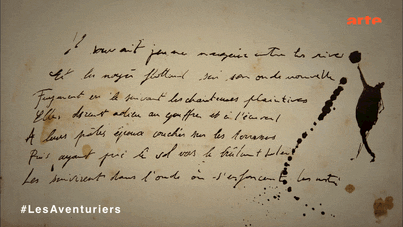 arte
Il souriait jeune nageur entre les rives
Et les noyés flottant sur son onde nouvelle
Fuyaient en le suivant les chanteuses plaintives
Elles dirent adieu au gouffre et à l'écueil
A leurs pâles époux couchés sur les terrasses
Puis ayant pris le vol vers le brûlant soleil
Les suivirent dans l'onde où s'enfoncent les astres
#LesAventuriers